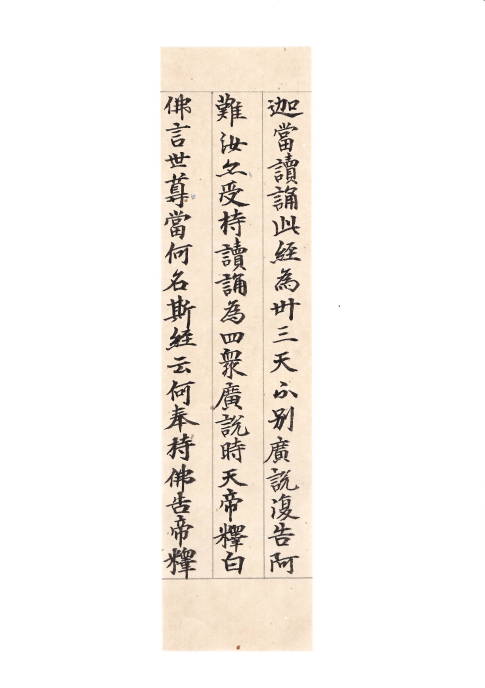 迦當讀誦此經為卅三天分别廣說復告阿
難汝亦受持讀誦為四衆廣說時天帝釋白
佛言世尊當何名斯經云何奉持佛告帝釋